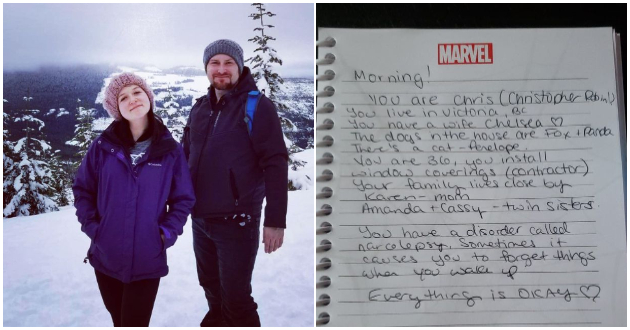 MARVEL
Morning!
You are chris (Christopher Robin!)
You live in Victoria, BC
You have a wife Chelsea ♡
The dogs in the house are Fox + Panda
There's a cat - Penelope.
You are 36, you install
window coverings (contractor)
Your family lives close by
Karen - mom
Amanda + Cassy - twin sisters.
You have a disorder called
narcolepsy. Sometimes it
causes you to forget things
when you wake up
Everything is OKAY ♡